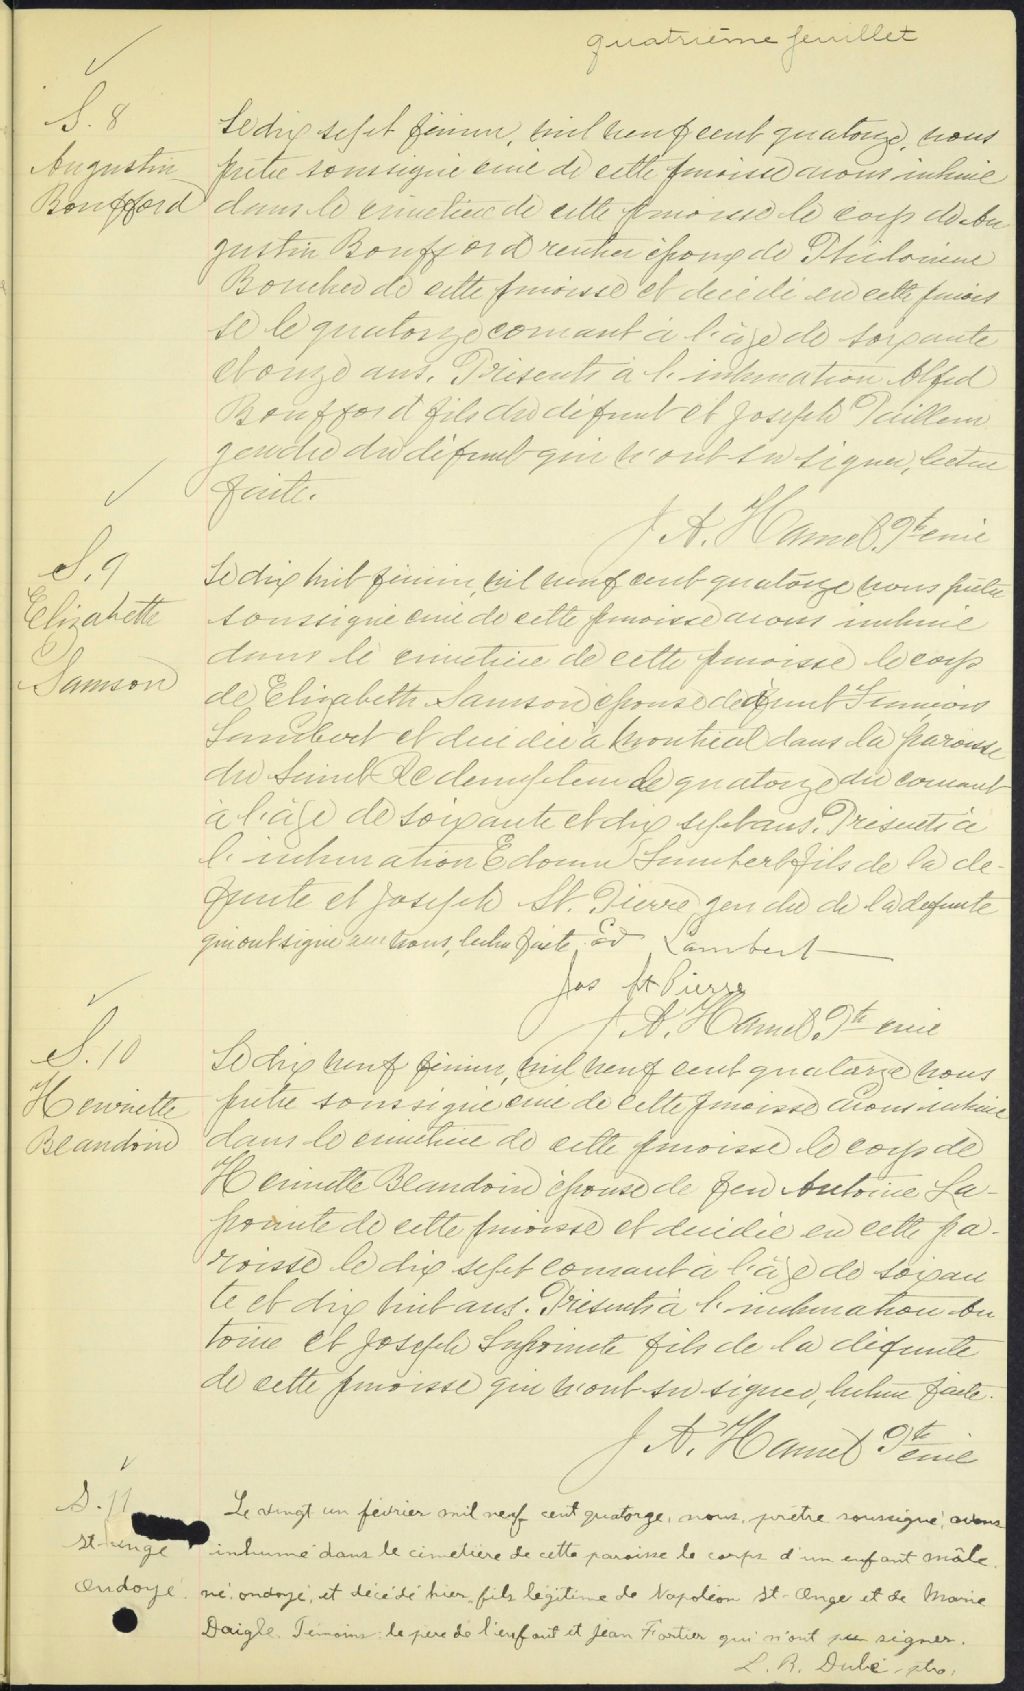 quatrième feuillet
S. 8
Augustin
Boufford
Le dix sept février, mil neuf cent quatorze, nous
prêtre soussigné curé de cette paroisse avons inhumé
dans le cimetière de cette paroisse le corp de Au
gustin Boufford rentier époux de Philomène
Boucher de cette paroisse et décédé en cette parois
se le quatorze courant à l'âge de soixante
et onze ans. Présents à l'inhumation Alfred
Boufford fils du défunt et Joseph
gendre du défunt qui n'ont su signer, lecture
faite.
J. A. Hamel Ptre curé
S. 9
Elizabeth
Samson
Le dix huit février, mil neuf cent quatorze nous prêtre
soussigné curé de cette paroisse avons inhumé
dans le cimetière de cette paroisse le corp
de Elizabeth Samson épouse de défunt François
Lambert et décédée à Montréal dans la paroisse
du Saint Redempteur le quatorze du courant
à l'âge de soixante et dix sept ans. Présents à
l'inhumation Lambert fils de la dé-
funte et Joseph St. Pierre gendre de la défunte
qui ont signé avec nous, lecture faite. Ed Lambert
Jos St Pierre
J. A. Hamel Ptre curé
S. 10
Henriette
Beaudoin
Le dix neuf février, mil neuf cent quatorze nous
prêtre soussigné curé de cette paroisse avons inhumé
dans le cimetière de cette paroisse le corp de
Henriette Beaudoin épouse de feu Antoine La-
pointe de cette paroisse et décédée en cette pa-
roisse le dix sept courant à l'âge de soixan
te et dix huit ans. Présents à l'inhumation An
toine et Joseph Lapointe fils de la défunte
de cette paroisse qui n'ont su signer, lecture faite.
J. A. Hamel Ptre curé
S. 11
St-Ange
Ondoyé
Le vingt un février mil neuf cent quatorze, nous, prêtre soussigné, avons
inhumé dans le cimetière de cette paroisse le corps d'un enfant mâle
né, ondoyé, et décédé hier, fils légitime de Napoléon St-Ange et de Marie
Daigle. Témoins: le père de l'enfant et Jean Fortier qui n'ont pu signer.
L. R. Dubé ptre.